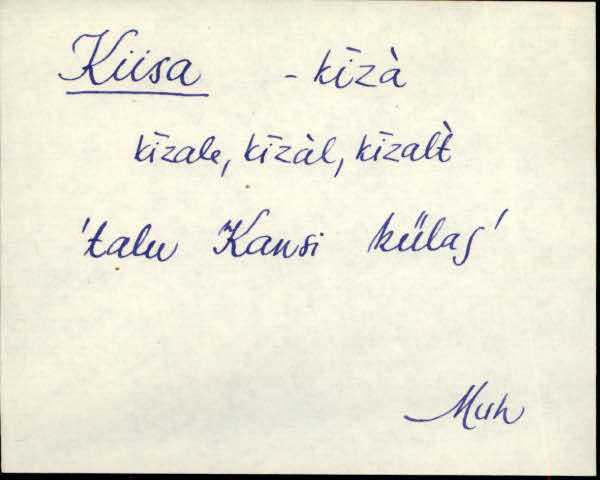 Kiisa - kīzà
kīzale, kīzàl, kīzalt̀
'talu Kansi külas'
Muh